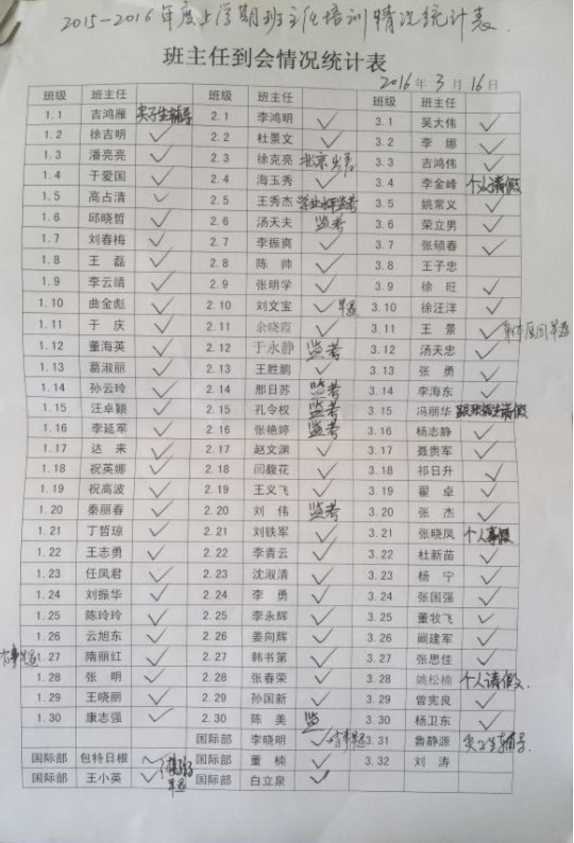 2015-2016年度上学期班主任培训情况统计表
班主任到会情况统计表
2016年3月16日
班级 班主任 班级 班主任 班级 班主任
1.1 吉鸿雁 实习生辅导 2.1 李鸿明 ✓ 3.1 吴大伟 ✓
1.2 徐吉明 ✓ 2.2 杜景文 ✓ 3.2 李娜 ✓
1.3 潘亮亮 ✓ 2.3 徐克亮 北京出差 3.3 吉鸿伟 ✓
1.4 于爱国 ✓ 2.4 海玉秀 ✓ 3.4 李金峰 个人请假
1.5 高占清 ✓ 2.5 王秀杰 学业水平监考 3.5 姚常义 ✓
1.6 邱晓哲 ✓ 2.6 汤天夫 监考 3.6 荣立男 ✓
1.7 刘春梅 ✓ 2.7 李振爽 ✓ 3.7 张硕春 ✓
1.8 王磊 ✓ 2.8 陈帅 ✓ 3.8 王子忠
1.9 李云靖 ✓ 2.9 张明学 ✓ 3.9 徐旺 ✓
1.10 曲金彪 ✓ 2.10 刘文宝 ✓ 早退 3.10 徐汪洋 ✓
1.11 于庆 ✓ 2.11 余晓霞 ✓ 3.11 王景 ✓ 身体原因早退
1.12 董海英 ✓ 2.12 于永静 监考 3.12 汤天忠 ✓
1.13 葛淑丽 ✓ 2.13 王胜鹏 ✓ 3.13 张勇 ✓
1.14 孙云玲 ✓ 2.14 那日苏 监考 3.14 李海东 ✓
1.15 汪卓颖 ✓ 2.15 孔令权 监考 3.15 冯丽华 请假
1.16 李延军 ✓ 2.16 张艳婷 监考 3.16 杨志静 ✓
1.17 达来 ✓ 2.17 赵文渊 ✓ 3.17 聂贵军 ✓
1.18 祝英娜 ✓ 2.18 闫馥花 ✓ 3.18 祁日升 ✓
1.19 祝高波 ✓ 2.19 王义飞 ✓ 3.19 翟卓 ✓
1.20 秦丽春 ✓ 2.20 刘伟 监考 3.20 张杰 ✓
1.21 丁哲琼 ✓ 2.21 刘铁军 ✓ 3.21 张晓凤 个人事假
1.22 王志勇 ✓ 2.22 李青云 ✓ 3.22 杜新苗 ✓
1.23 任凤君 ✓ 2.23 沈淑清 ✓ 3.23 杨宁 ✓
1.24 刘振华 ✓ 2.24 李勇 ✓ 3.24 张国强 ✓
1.25 陈玲玲 ✓ 2.25 李永辉 ✓ 3.25 董牧飞 ✓
1.26 云旭东 ✓ 2.26 姜向辉 ✓ 3.26 阚建军 ✓
有事早退 1.27 隋丽红 ✓ 2.27 韩书第 ✓ 3.27 张思佳 ✓
1.28 张明 ✓ 2.28 张春荣 ✓ 3.28 姚松楠 个人请假
1.29 王晓丽 ✓ 2.29 孙国新 ✓ 3.29 曾宪良 ✓
1.30 康志强 ✓ 2.30 陈美 监 3.30 杨卫东 ✓
国际部 李晓明 ✓ 有事早退 3.31 鲁静源 实习生辅导
国际部 包特日根 国际部 董楠 ✓ 3.32 刘涛
国际部 王小英 ✓ 早退 国际部 白立泉 ✓